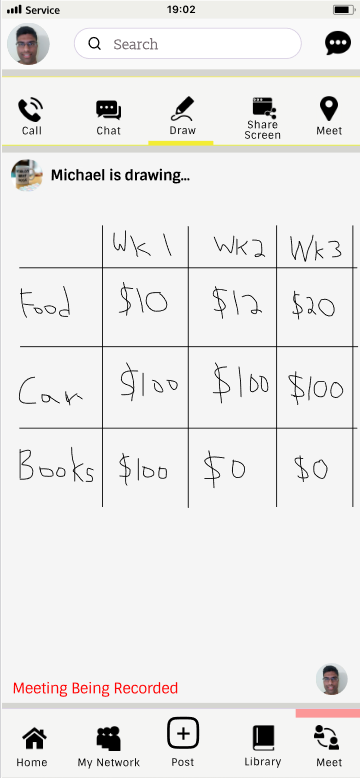 Service 19:02
Search
Call Chat Draw Share Screen Meet
Michael is drawing...
Wk 1 Wk2 Wk3
Food $10 $12 $20
Car $100 $100 $100
Books $100 $0 $0
Meeting Being Recorded
Home My Network Post Library Meet